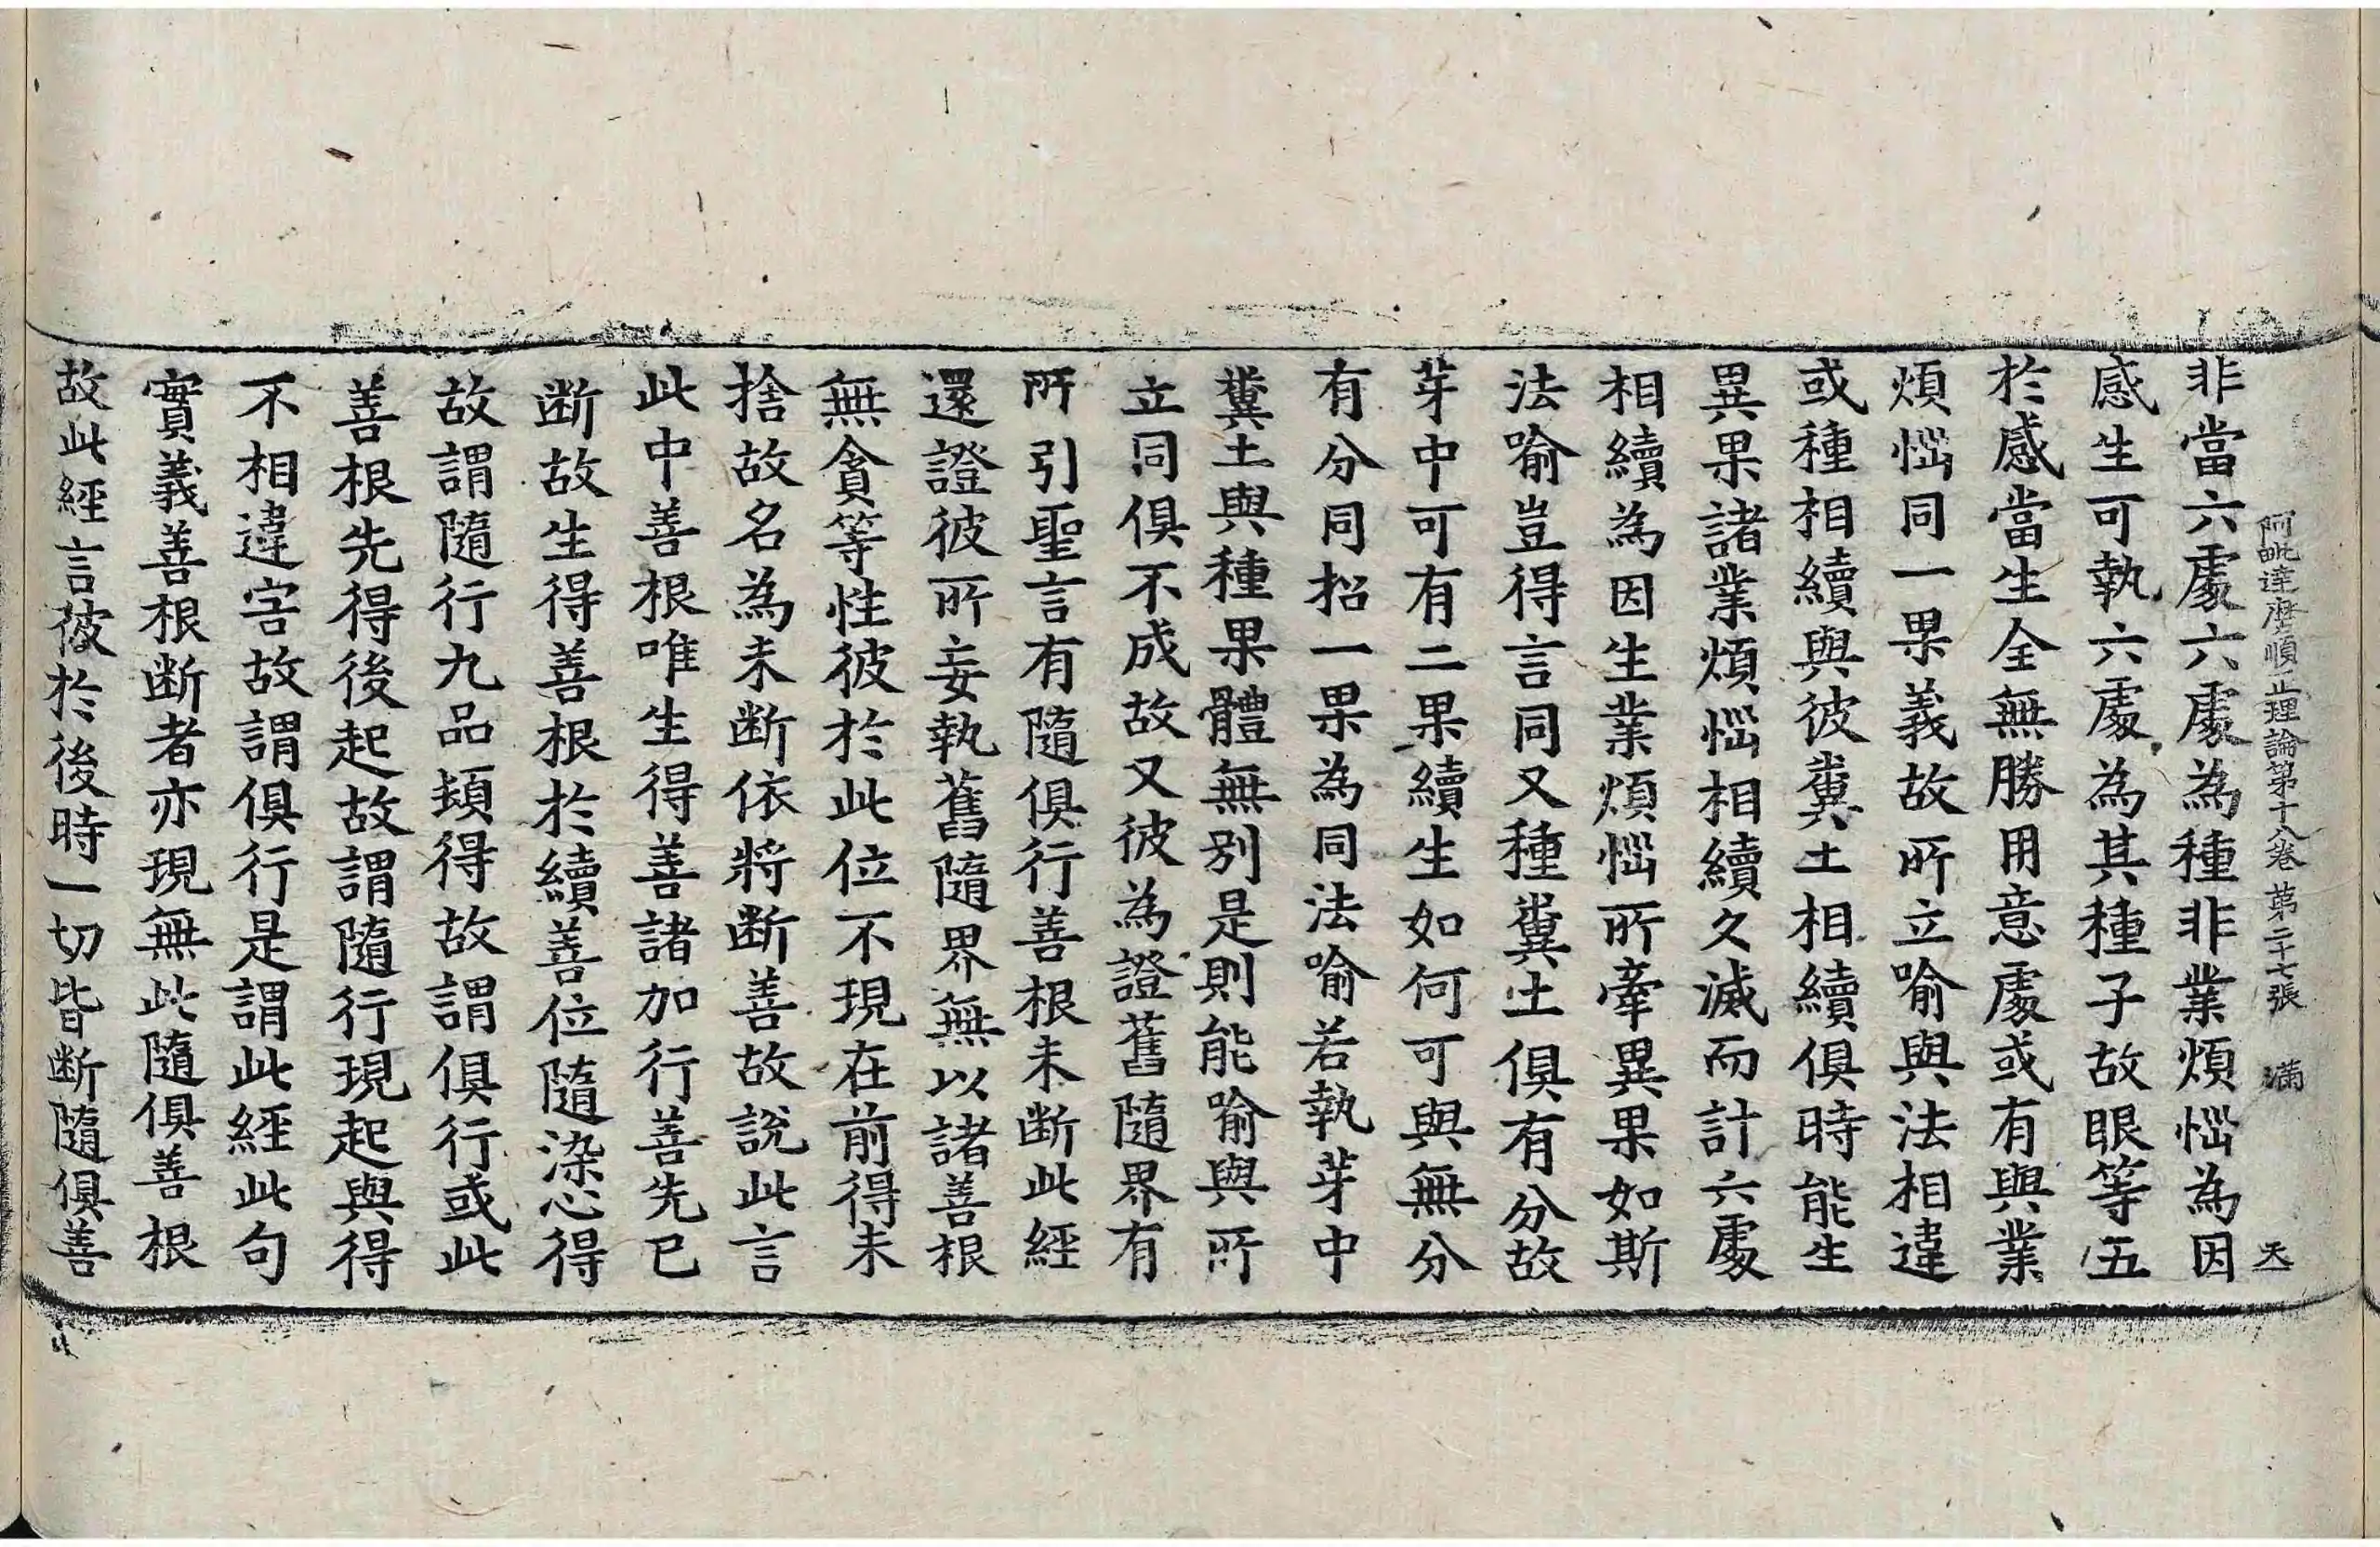 阿毗達磨順正理論第十八卷 第二十七張 滿 天
非當六處六處為種非業煩惱為因
感生可執六處為其種子故眼等五
於感當生全無勝用意處或有與業
煩惱同一果義故所立喻與法相違
或種相續與彼糞土相續俱時能生
異果諸業煩惱相續久滅而計六處
相續為因生業煩惱所牽異果如斯
法喻豈得言同又種糞土俱有分故
芽中可有二果續生如何可與無分
有分同招一果為同法喻若執芽中
糞土與種果體無別是則能喻與所
立同俱不成故又彼為證舊隨界有
所引聖言有隨俱行善根未断此經
還證彼所妄執舊隨界無以諸善根
無貪等性彼於此位不現在前得未
捨故名為未断依將断善故說此言
此中善根唯生得善諸加行善先已
断故生得善根於續善位隨染心得
故謂隨行九品頓得故謂俱行或此
善根先得後起故謂隨行現起與得
不相違害故謂俱行是謂此經此句
實義善根断者亦現無此隨俱善根
故此經言彼於後時一切皆断隨俱善